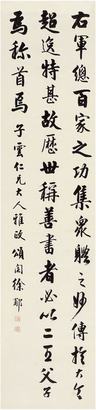 右軍總百家之功集衆體之妙傳於大令
超逸特甚故歷世稱善書者必以二王父子
為稱首焉 子雲仁兄大人雅政 頌閣徐郙